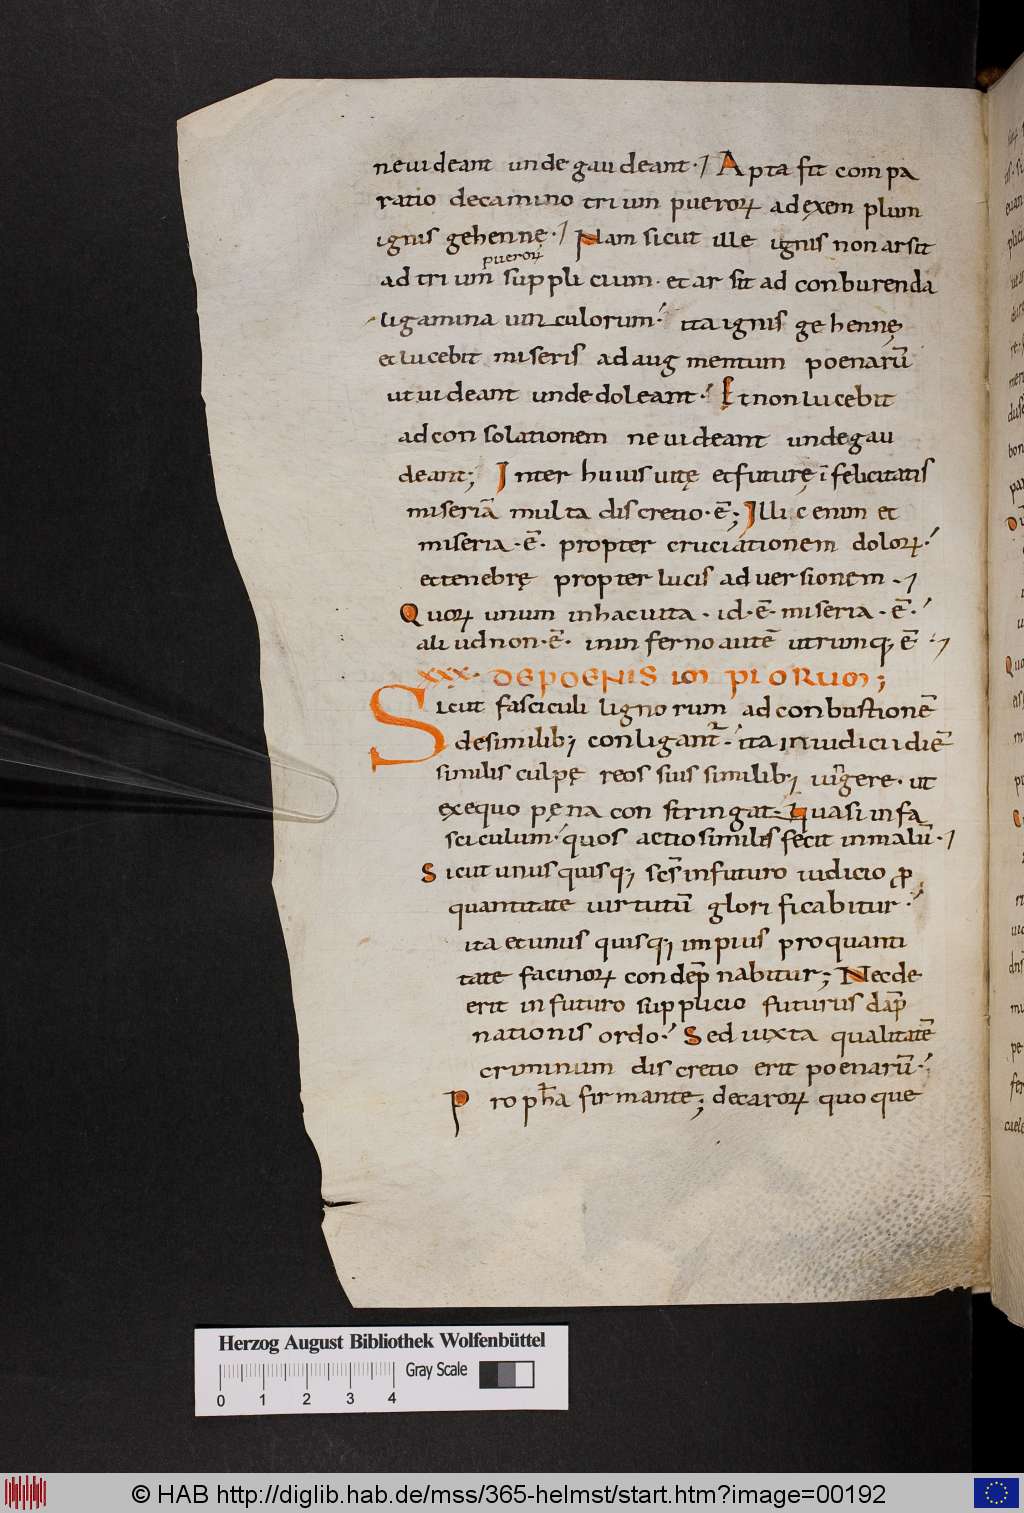 ne uideant unde gaudeant· Apta fit compa
ratio decamino trium pueroꝝ ad exęmplum
ignis gehennę· Nam sicut ille ignis non arsit
pueroꝝ
ad trium supplicium· et arsit ad conburenda
ligamina uinculorum· ita ignis gehennę
et lucebit miseris ad augmentum poenarū
ut uideant unde doleant· Et non lucebit
ad consolationem ne uideant unde gau
deant; Inter huius uitę et futurę īfelicitatis
miseriā multa discretio·ē; Illic enim et
miseria·ē· propter cruciationem doloꝝ·
et tenebrę propter lucis aduersionem·
Quoꝝ unum in hac uita· id·ē· miseria·ē·
aliud non·ē· in inferno autē utrumq; ē
XXX· DE POENIS IMPIORUM;
Sicut fasciculi lignorum ad conbustionē
de similib; conligant᷑· ita in iudicii diē
similis culpę reos suis similib; iungere· ut
ex equo pęna constringat· quasi in fa
sciculum· quos actio similis fecit in malū·
Sicut unusquisq; scs̄ in futuro iudicio ꝓ
quantitate uirtutū glorificabitur·
ita et unusquisq; impius pro quanti
tate facinoꝝ condēpnabitur; Nec de
erit in futuro supplicio futurus dāp
nationis ordo· Sed iuxta qualitatē
criminum discretio erit poenarū·
Propħa firmante; de caroꝝ quoque
Herzog August Bibliothek Wolfenbüttel
Gray Scale
0 1 2 3 4
© HAB http://diglib.hab.de/mss/365-helmst/start.htm?image=00192